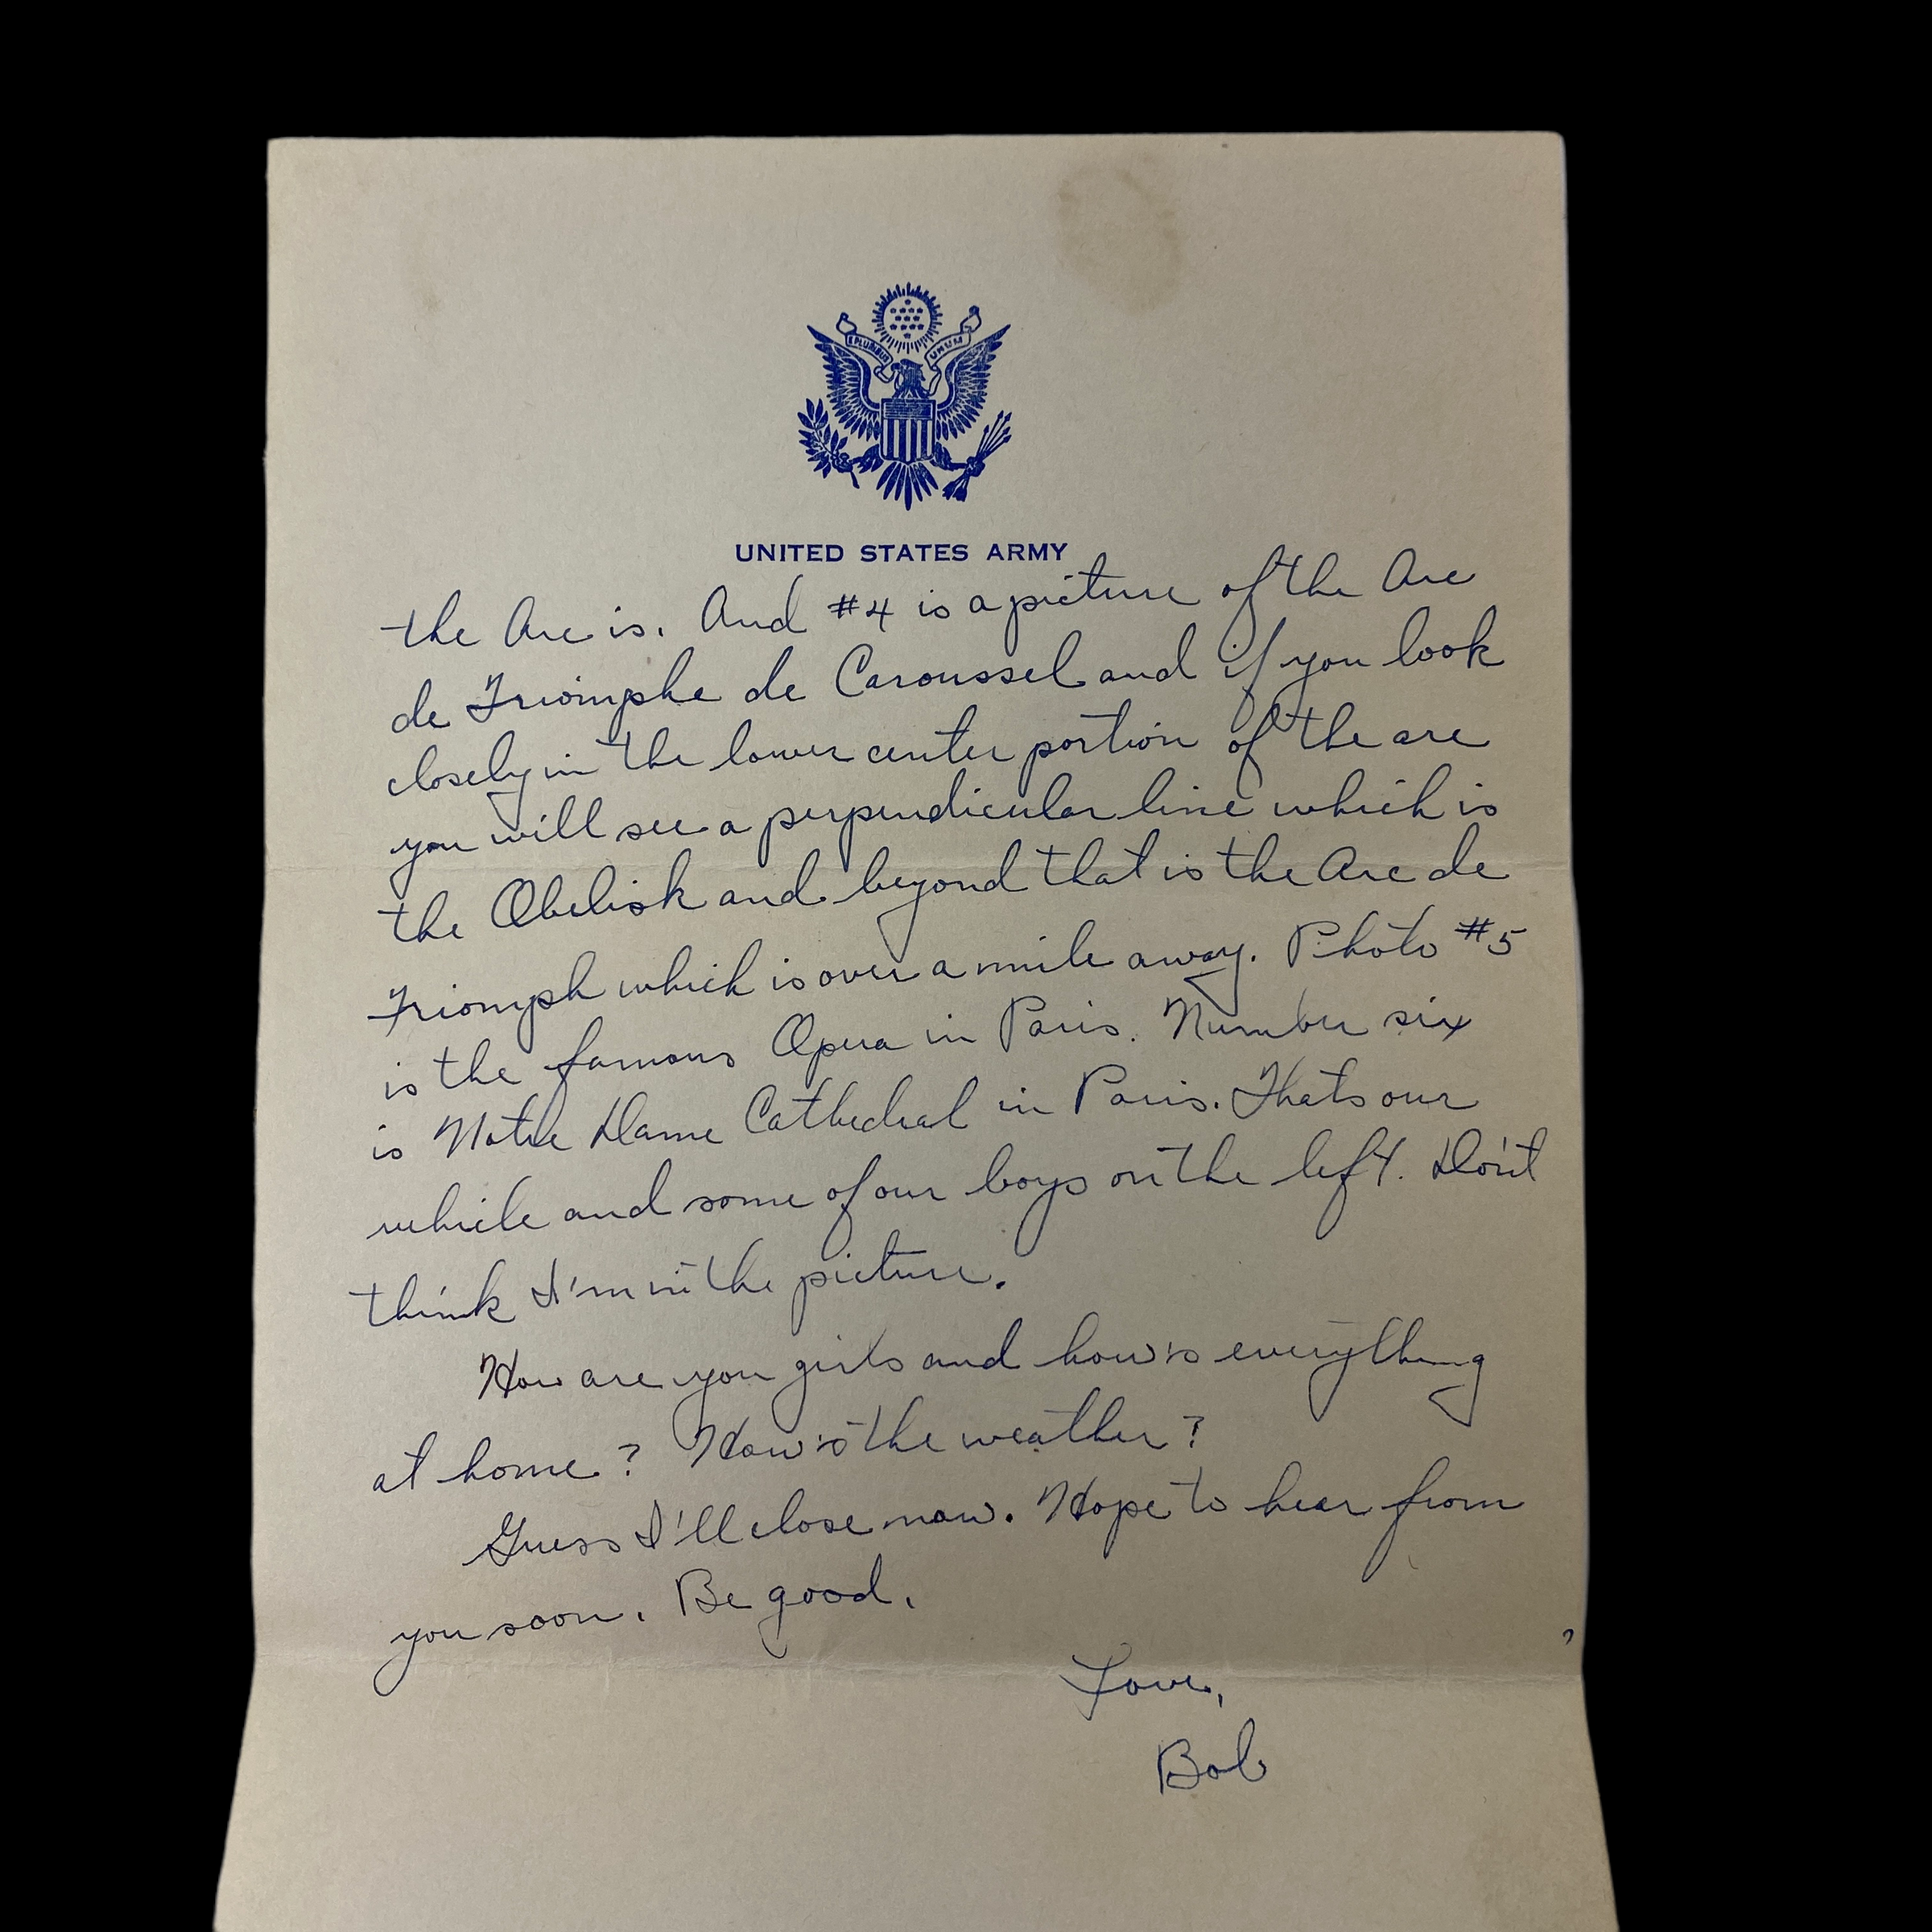 E PLURIBUS UNUM
UNITED STATES ARMY
the Arc is. And #4 is a picture of the Arc
de Triomphe de Caroussel and if you look
closely in the lower center portion of the arc
you will see a perpendicular line which is
the Obelisk and beyond that is the Arc de
Triomph which is over a mile away. Photo #5
is the famous Opera in Paris. Number six
is Notre Dame Cathedral in Paris. Thats our
vehicle and some of our boys on the left. Don't
think I'm in the picture.
How are you girls and how's everything
at home? How's the weather?
Guess I'll close now. Hope to hear from
you soon. Be good.
Love,
Bob